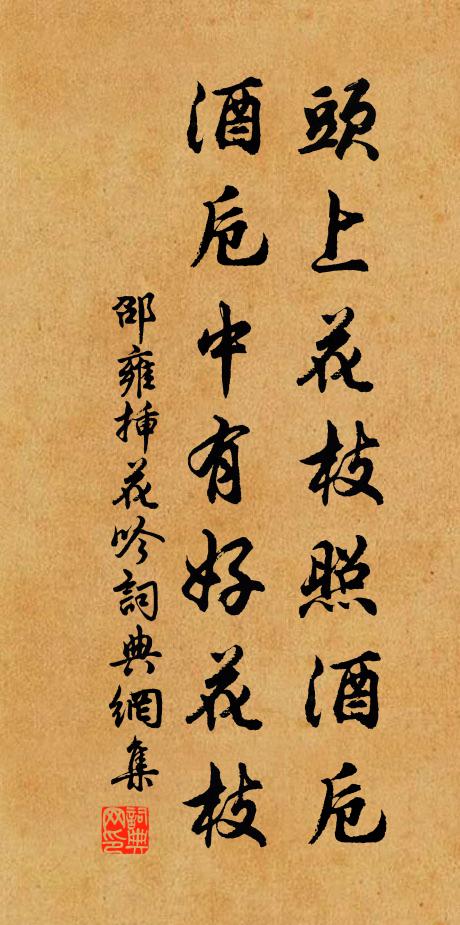 頭上花枝照酒卮
酒卮中有好花枝
邵雍插花吟詞典網集
詞典
网印